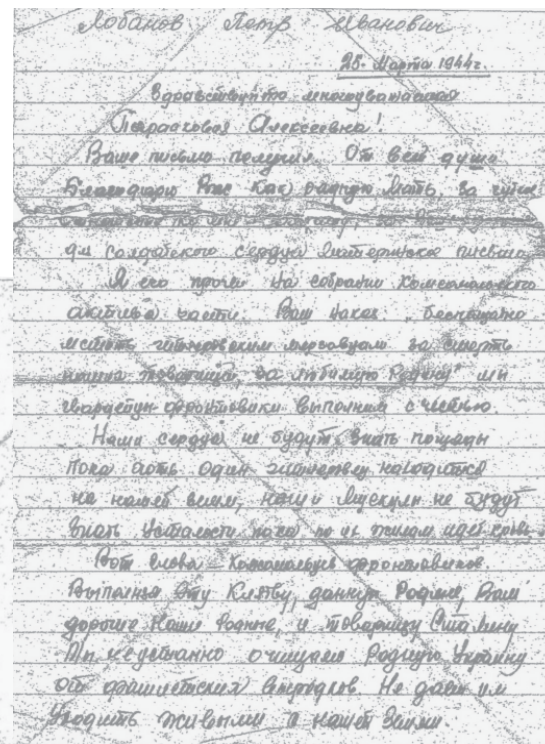 Лобанов Петр Иванович
25. Марта 1944г.
Здравствуйте многоуважаемая
Алексеевна!
Ваше письмо получил. От всей души
благодарю Вас как родную мать, за
для солдатского сердца материнское письмо.
Я его прочел на собрании комсомольского
актива части. Ваш наказ: "беспощадно
мстить гитлеровским мерзавцам за смерть
товарища, за любимую Родину" мы
гвардейцы фронтовики выполним с честью.
Наши сердца не будут знать пощады
пока хоть один находится
на нашей земле, наши мускулы не будут
знать усталости пока по их жилам идет кровь.
Вот слова - комсомольцев фронтовиков
Выполняя эту Клятву, данную Родине, Вам
дорогие Наши Родные, и товарищу Сталину
Мы неустанно очищаем Родную Украину
от фашистских выродков. Не даем им
уходить живыми с нашей Земли.